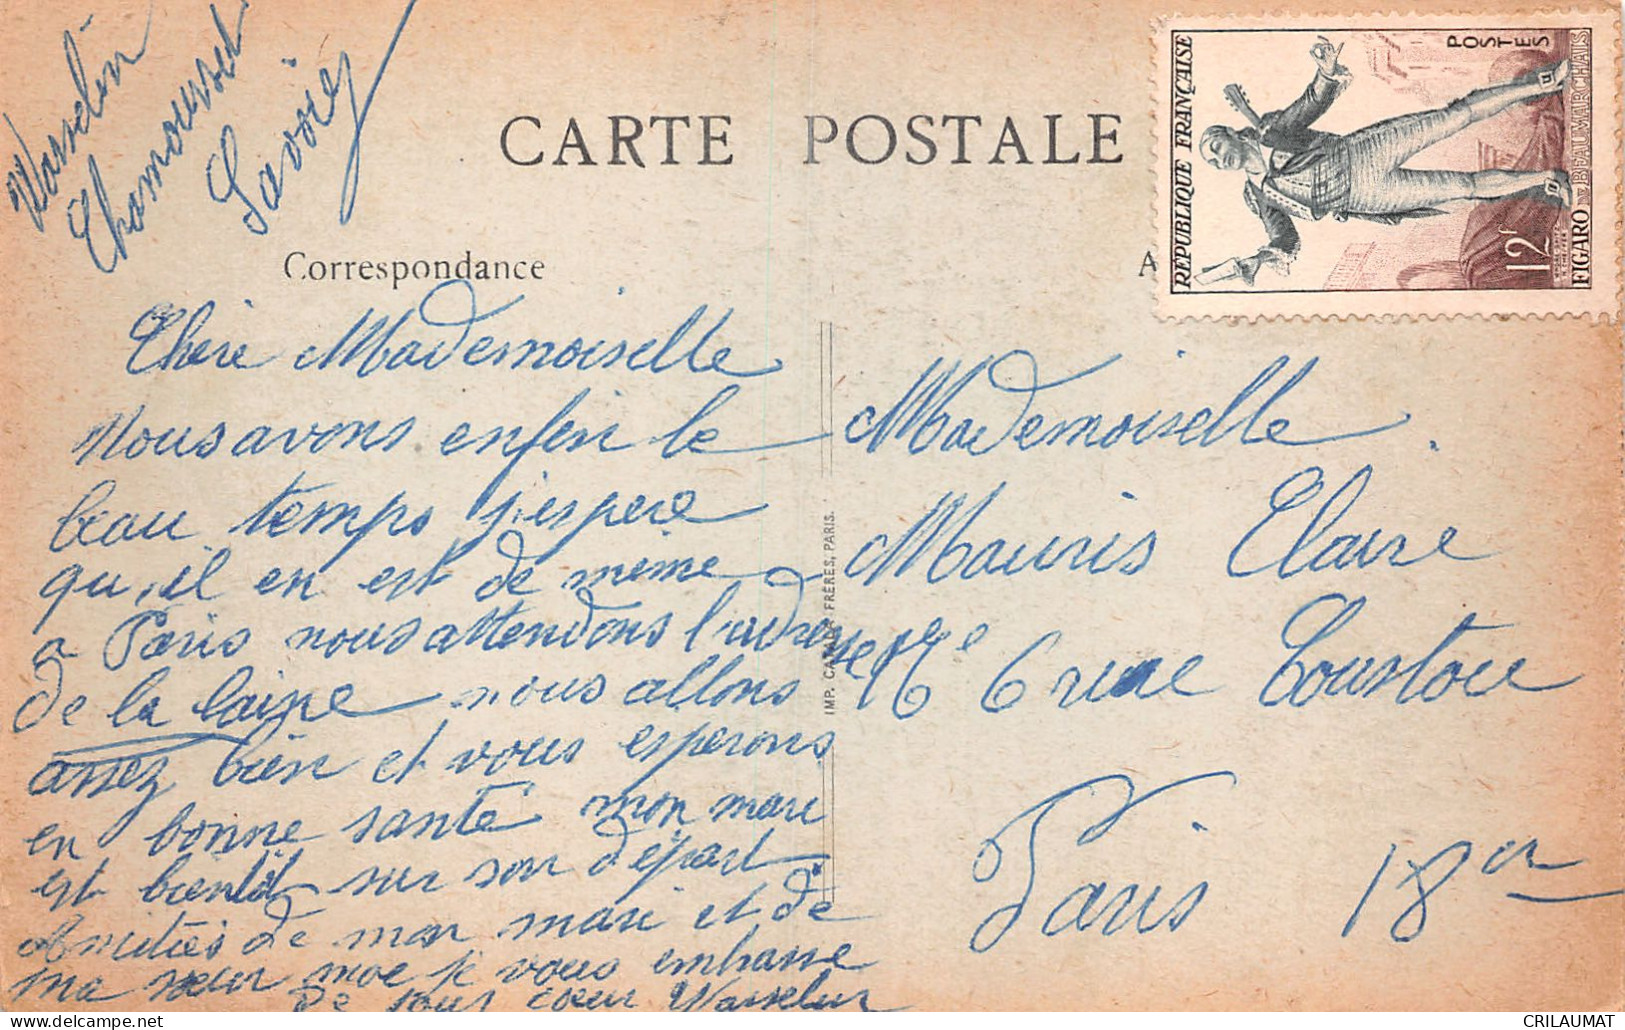 Chamousset
Savoie
CARTE POSTALE
Correspondance
A
RÉPUBLIQUE FRANÇAISE
POSTES
12F
FIGARO DE BEAUMARCHAIS
Chere Mademoiselle
Nous avons enfin le
beau temps j'espere
qu'il en est de même
a Paris nous attendons l'adresse
de la laine nous allons
assez bien et vous esperons
en bonne santé mon mari
est bientôt sur son départ
Amitiés de mon mari et de
ma sœur moi je vous embrasse
de tout cœur
IMP. FRÈRES, PARIS.
Mademoiselle
Mauris Claire
6 rue
Paris 18er
CRILAUMAT